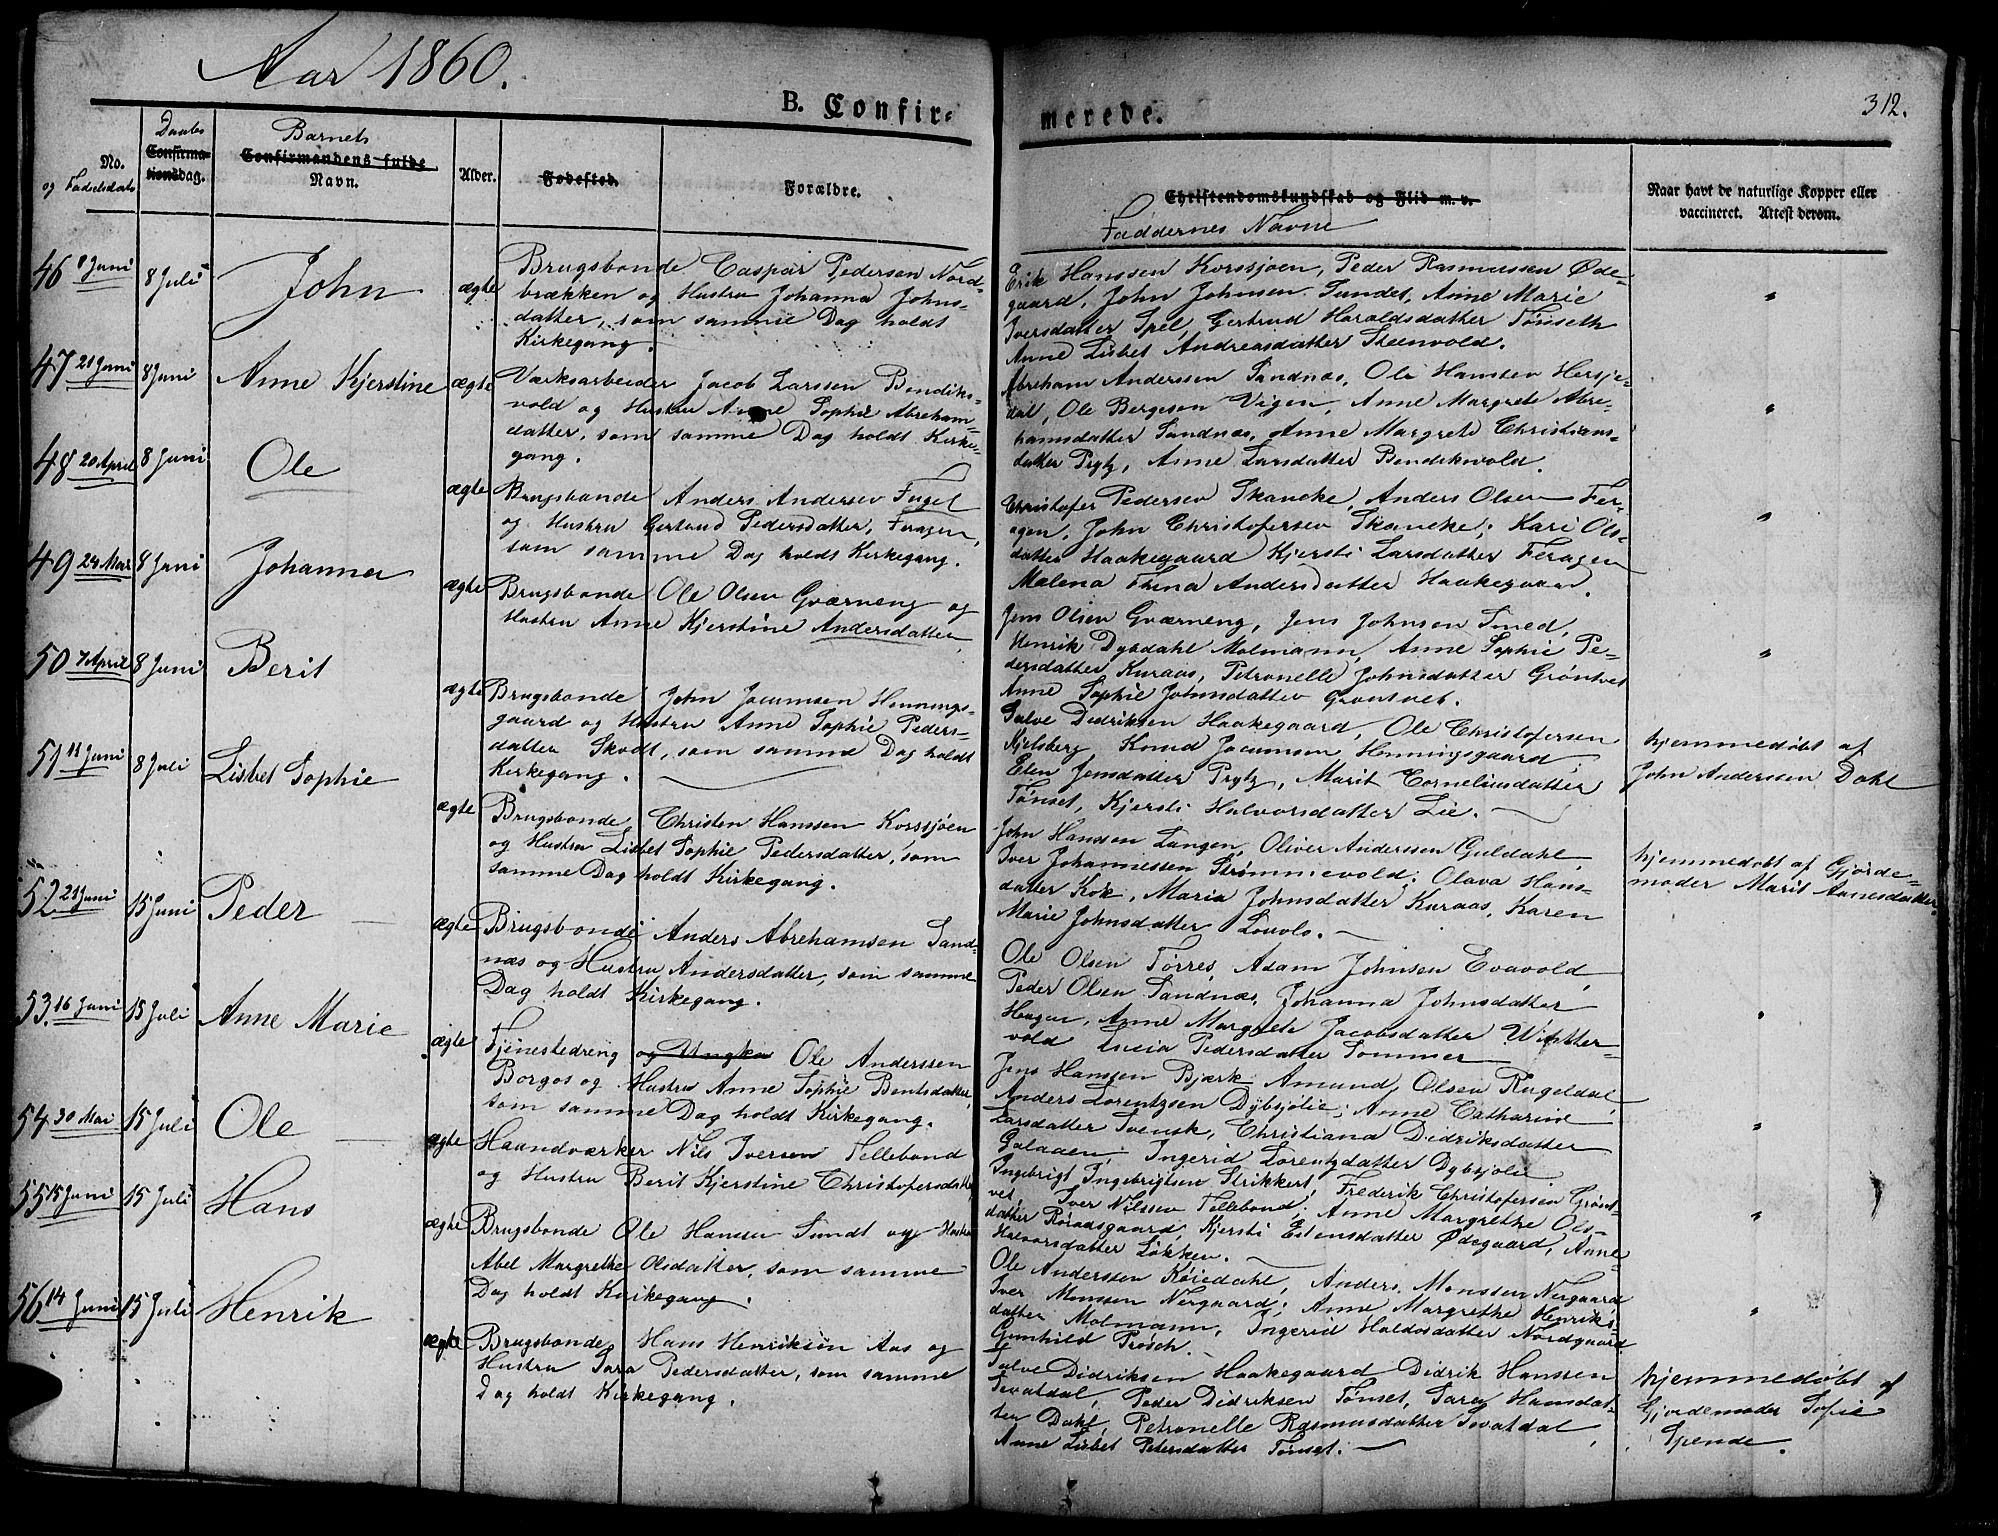 Aar 1860.
B. Confir-
merede.
312.
No. og Fødselsdato
Daabs Confirmationsdag.
Barnets Confirmandens fulde Navn.
Alder.
Fødested.
Forældre.
Christendomskundskab og Flid m. v.
Faddernes Navne
Naar havt de naturlige Kopper eller
vaccineret. Attest derom.
46 8 Juni
8 Juli
John
ægte
Brugsbonde Caspar Pedersen Nord-
brækken og Hustru Johanna Johns-
datter, som samme Dag holdt
Kirkegang.
Erik Hanssen Korssjøen, Peder Rasmussen Øde-
gaard, John Johnsen Sundet, Anne Marie
Iversdatter Spel, Gertrud Haroldsdatter Tønseth
Anne Lisbet Andreasdatter Steenvold.
"
47 21 Juni
8 Juni
Anne Kjerstine
ægte
Værksarbeider Jacob Larssen Bendiks-
vold og Hustru Anne Sophie Abreham-
datter, som samme Dag holdt Kirke-
gang.
Abreham Anderssen Sandnæs, Ole Hansen Hersje-
dal, Ole Bergesen Vigen, Anne Margrete Abre-
hamsdatter Sandnæs, Anne Margrete Christians-
datter Prytz, Anne Larsdatter Bendiksvold.
"
48 20 April
8 Juni
Ole
ægte
Brugsbonde Anders Andersen Fugel
og Hustru Gertrud Pedersdatter, Feragen,
som samme Dag holdt Kirkegang.
Christofer Pedersen Skancke, Anders Olsen Fer-
agen, John Christofersen Skancke, Kari Ols-
datter Haakegaard Kjersti Larsdatter Feragen
Malena Trina Andersdatter Haakegaard.
"
49 24 Mai
8 Juni
Johanna
ægte
Brugsbonde Ole Olsen Gværneng og
Hustru Anne Kjerstine Andersdatter
Jens Olsen Gværneng, Jens Johnsen Smed,
Henrik Dybdahl Molmann, Anne Sophie Pe-
dersdatter Kuraas, Petronelle Johnsdatter Grøntvet
Anne Sophie Johnsdatter Grøntvet.
"
50 7 April
8 Juni
Berit
ægte
Brugsbonde John Jocumsen Hennings-
gaard og Hustru Anne Sophie Peders-
datter Skodt, som samme Dag holdt
Kirkegang.
Salve Didriksen Haakegaard, Ole Christofersen
Kjelsberg Knud Jocumsen Henningsgaard,
Elen Jensdatter Prytz, Marit Corneliusdatter
Tønset, Kjersti Halvorsdatter Lie.
hjemmedøbt af
John Anderssen Dahl
51 11 Juni
8 Juli
Lisbet Sophie
ægte
Brugsbonde Christen Hanssen Korssjøen
og Hustru Lisbet Sophie Pedersdatter, som
samme Dag holdt Kirkegang.
John Hanssen Langen, Oliver Anderssen Guldahl,
Iver Johannessen Strømmevold, Olava Hans-
datter Kok, Maria Johnsdatter Kuraas, Karen
Marie Johnsdatter Lovols.
hjemmedøbt af Gjorde-
moder Marit Aanesdatter
52 21 Juni
15 Juni
Peder
ægte
Brugsbonde Anders Abrehamsen Sand-
næs og Hustru Andersdatter, som samme
Dag holdt Kirkegang.
Ole Olsen Tørres, Adam Johnsen Evavold,
Peder Olsen Sandnæs, Johanna Johnsdatter
Haugen, Anne Margrete Jacobsdatter Wintter-
vold Lucia Pedersdatter Sommer
53 16 Juni
15 Juli
Anne Marie
ægte
Tjenestedreng og Ungka Ole Anderssen
Borgos og Hustru Anne Sophie Bentsdatter,
som samme Dag holdt Kirkegang.
Jens Hanssen Bjærk Amund Olsen Rugeldal,
Anders Lorentzsen Dybsjolie, Anne Catharine
Larsdatter Svensk, Christiana Didriksdatter
Galaaen, Ingerid Lorentzdatter Dybsjolie
54 30 Mai
15 Juli
Ole
ægte
Haandværker Nils Iversen Tellebond
og Hustru Berit Kjerstine Christofersdatter
Ingebrigt Ingebrigtsen Strikkert, Frederik Christofersen Grønt-
vet, Iver Nilssen Tellebond, Anne Margrethe Ols-
datter Røraasgaard, Kjersti Estensdatter Ødegaard, Anne
Halvorsdatter Løkken.
"
55 15 Juni
15 Juli
Hans
ægte
Brugsbonde Ole Hansen Sundt og Hustru
Abel Margrethe Olsdatter, som samme
Dag holdt Kirkegang.
Ole Anderssen Køiedahl, Anders Monssen Nergaard
Iver Monssen Nergaard, Anne Margrethe Henriks-
datter Molmann, Ingerid Haldosdatter Nordgaard
Gunhild Prøsch.
"
56 14 Juni
15 Juli
Henrik
ægte
Brugsbonde Hans Henriksen Aas og
Hustru Sara Pedersdatter, som samme
Dag holdt Kirkegang.
Salve Didriksen Haakegaard Didrik Hanssen
Sevatdal, Peder Didriksen Tønset, Sara Hansdat-
ter Dahl, Petronelle Rasmusdatter Sevatdal,
Anne Lisbet Petersdatter Tønset.
hjemmedøbt af
Gjordemoder Sofie
Spende.